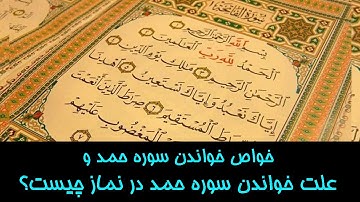 بِسْمِ ٱللَّهِ ٱلرَّحْمَٰنِ ٱلرَّحِيمِ
ٱلْحَمْدُ لِلَّهِ رَبِّ ٱلْعَٰلَمِينَ
ٱلرَّحْمَٰنِ ٱلرَّحِيمِ مَٰلِكِ يَوْمِ ٱلدِّينِ
إِيَّاكَ نَعْبُدُ وَإِيَّاكَ نَسْتَعِينُ ٱهْدِنَا
ٱلصِّرَٰطَ ٱلْمُسْتَقِيمَ صِرَٰطَ ٱلَّذِينَ أَنْعَمْتَ
ٱلْمَغْضُوبِ عَلَيْهِمْ
خواص خواندن سوره حمد و
علت خواندن سوره حمد در نماز چیست؟